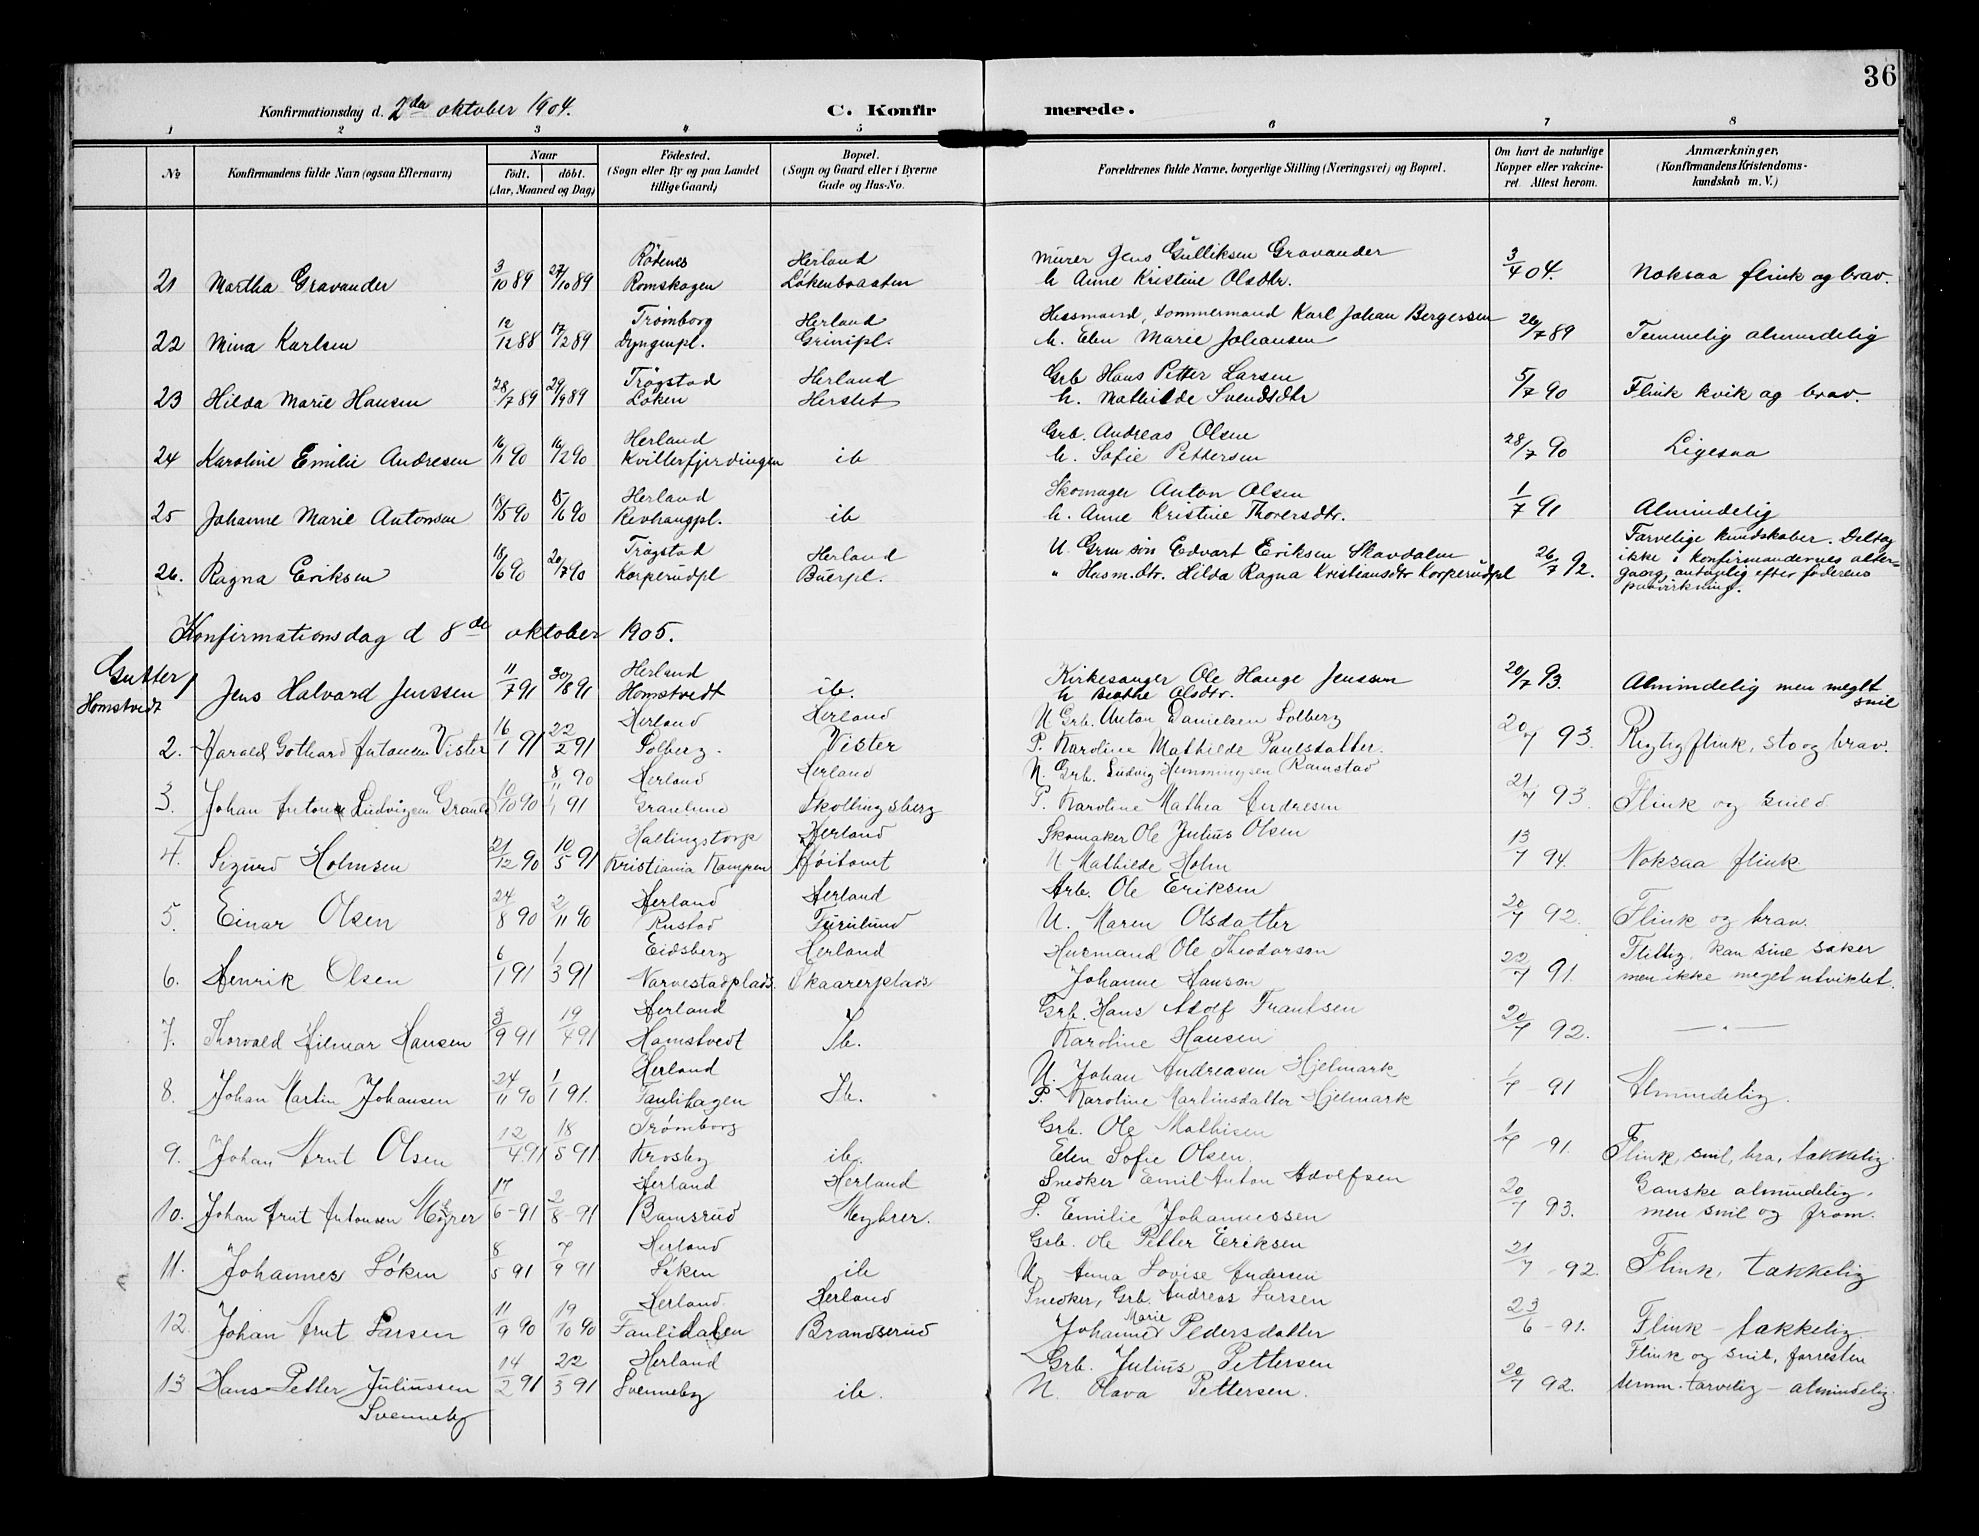 36
Konfirmationsdag d. 2den oktober 1904. C. Konfirmerede.
1 2 3 4 5 6 7 8
No
Konfirmandens fulde Navn (ogsaa Efternavn)
Naar
født. døbt.
(Aar, Maaned og Dag)
Fødested.
(Sogn eller By og paa Landet
tillige Gaard)
Bopæl.
(Sogn og Gaard eller i Byerne
Gade og Hus-No.
Forældrenes fulde Navne, borgerlige Stilling (Næringsvei) og Bopæl.
Om havt de naturlige
Kopper eller vakcine-
ret. Attest herom.
Anmærkninger.
(Konfirmandens Kristendoms-
kundskab m. V.)
Rödenes Herland Murer Jens Gulliksen Gravander
21 Martha Gravander 3/10 89 27/10 89 Romskogen Løkenbraaten h Anne Kristine Olsdtr. 3/4 04. Noksaa flink og brav.
Trømborg Herland Husmand, tømmermand Karl Johan Bergersen
22 Mina Karlsen 12/12 88 17/2 89 Dyngenpl. Grinipl. h. Elen Marie Johansen 26/7 89 Temmelig almindelig
Trøgstad Herland Grb Hans Petter Larsen
23 Hilda Marie Hansen 28/7 89 29/9 89 Løken Herslet h. Mathilde Svendsdtr 5/7 90 Flink kvik og brav.
Herland Grb. Andreas Olsen
24 Karoline Emilie Andresen 16/1 90 16/2 90 Kvillerfjerdingen ib h. Sofie Pettersen 28/7 90 Ligesaa
Herland Skomager Anton Olsen
25 Johanne Marie Antonsen 18/5 90 15/6 90 Revhaugpl. ib h. Anne Kristine Thoversdtr. 1/7 91 Almindelig
Trøgstad Herland U. Grm søn Edvart Eriksen Skavdalen Tarvelige kundskaber. Deltog
26. Ragna Eriksen 18/6 90 20/7 90 Korperudpl Buerpl. " Husm.dtr. Hilda Ragna Kristiansdtr Korperudpl 26/7 92. ikke i konfirmandernes alter-
gang, antagelig efter faderens
paavirkning.
Konfirmationsdag d 8de oktober 1905.
Gutter, Herland Kirkesanger Ole Hauge Jenssen
Homstvedt Jens Halvard Jenssen 11/7 91 30/8 91 Homstvedt ib. h Berthe Olsdtr. 20/7 93. Almindelig men meget
snil
Herland Herland U Grb. Anton Danielsen Solberg
2. Harald Gothard Antonsen Vister 16/1 91 22/2 91 Solberg. Vister P. Karoline Mathilde Paulsdatter. 20/7 93. Rigtig flink, sto og brav.
8/11 90 Herland Herland U. Grb. Ludvig Hemmingsen Ramstad
3. Johan Anton Ludvigsen 10/10 90 1/1 91 Graulund Skollingsberg P. Karoline Mathea Andresen 21/7 93. Flink og snild
Hallingstorp Herland Skomaker Ole Julius Olsen
4. Sigurd Holmsen 21/12 90 10/5 91 Kristiania Kampen Høitomt U Mathilde Holm 13/7 94. Noksaa flink
Herland Herland Arb. Ole Eriksen
5. Einar Olsen 24/8 90 2/11 90 Rustad Furulund U. Maren Olsdatter 20/7 92. Flink og brav.
Eidsberg Herland Husmand Ole Theodorson Flittig, kan sine saker
6. Henrik Olsen 6/1 91 1/3 91 Narvestadplads. Skaarerplads Johanne Hanson 22/7 91. men ikke meget utviklet.
Herland Grb. Hans Adolf Frantsen
7. Thorvald Hilmar Hansen 3/9 91 19/4 91 Hamstvedt Ib. Karoline Hansen 20/7 92. — " —
Herland U. Johan Andreasen Hjelmark
8. Johan Martin Johansen 24/11 90 1/1 91. Faulihagen Ib. P. Karoline Martinsdatter Hjelmark 1/7 - 91 Almindelig.
Trømborg Grb. Ole Mathisen
9. Johan Arnt Olsen 12/4 91 18/5 91 Krosby ib. Elen Sofie Olsen. 1/7 - 91. Flink, snil, bra, tækkelig.
Herland Herland Snedker Emil Anton Adolfsen Ganske almindelig,
10. Johan Arnt Antonsen 17/6 - 91 2/8 - 91 Ramsrud Myhrer. P. Emilie Johannessen 20/7 93. men snil og from.
Herland Grb. Ole Petter Eriksen
11. Johannes Løken 8/5 91 7/9 91 Løken ib U. Anna Lovise Andersen 21/7 - 92. Flink, tækkelig
Herland Herland Snedker, Grb. Andreas Larsen
12. Johan Arnt Larsen 11/9 90 19/10 90 Faulidalen Brandserud Johanne Marie Pedersdatter 23/6 - 91. Flink - tækkelig
Herland Grb. Julius Pettersen Flink og snil, forresten
13 Hans Petter Juliussen 14/2 91 22/3 91 Svenneby ib. U. Olava Pettersen. 20/7 92. temm. tarvelig - almindelig.
Svenneby